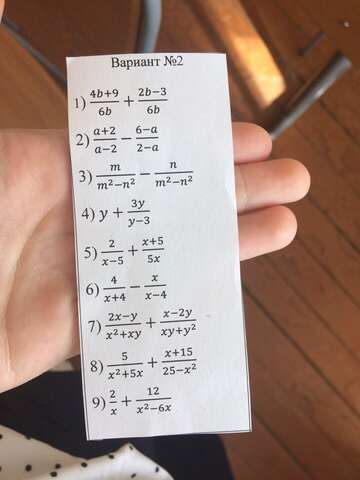 Вариант №2
1) \frac{4b+9}{6b} + \frac{2b-3}{6b}
2) \frac{a+2}{a-2} - \frac{6-a}{2-a}
3) \frac{m}{m^2-n^2} - \frac{n}{m^2-n^2}
4) y + \frac{3y}{y-3}
5) \frac{2}{x-5} + \frac{x+5}{5x}
6) \frac{4}{x+4} - \frac{x}{x-4}
7) \frac{2x-y}{x^2+xy} + \frac{x-2y}{xy+y^2}
8) \frac{5}{x^2+5x} + \frac{x+15}{25-x^2}
9) \frac{2}{x} + \frac{12}{x^2-6x}